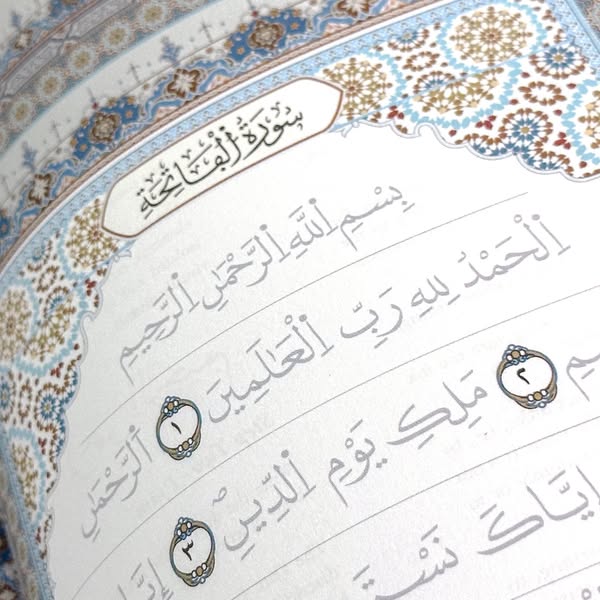 سُورَةُ ٱلْفَاتِحَةِ
بِسْمِ ٱللَّهِ ٱلرَّحْمَٰنِ ٱلرَّحِيمِ
ٱلْحَمْدُ لِلَّهِ رَبِّ ٱلْعَٰلَمِينَ ١ ٱلرَّحْمَٰنِ
٢ مَلِكِ يَوْمِ ٱلدِّينِ ۖ ٣ إِيَّا
إِيَّاكَ نَسْتَ